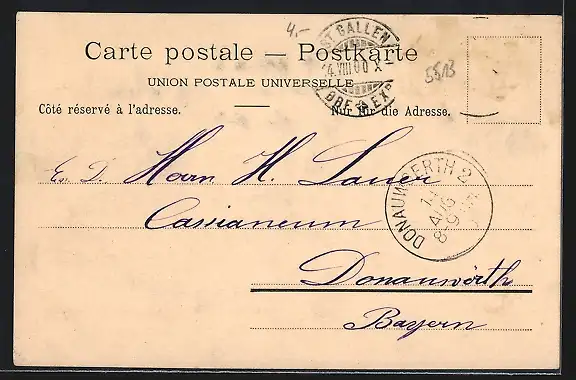 4.-
ST. GALLEN
14.VIII.00 X
BRF. EX.
Carte postale — Postkarte
UNION POSTALE UNIVERSELLE
5513
Côté réservé à l'adresse.
Nur für die Adresse.
Herrn H. Lauer
Cassianeum
DONAUWOERTH 2
14
AUG
8-9
Donauwörth
Bayern